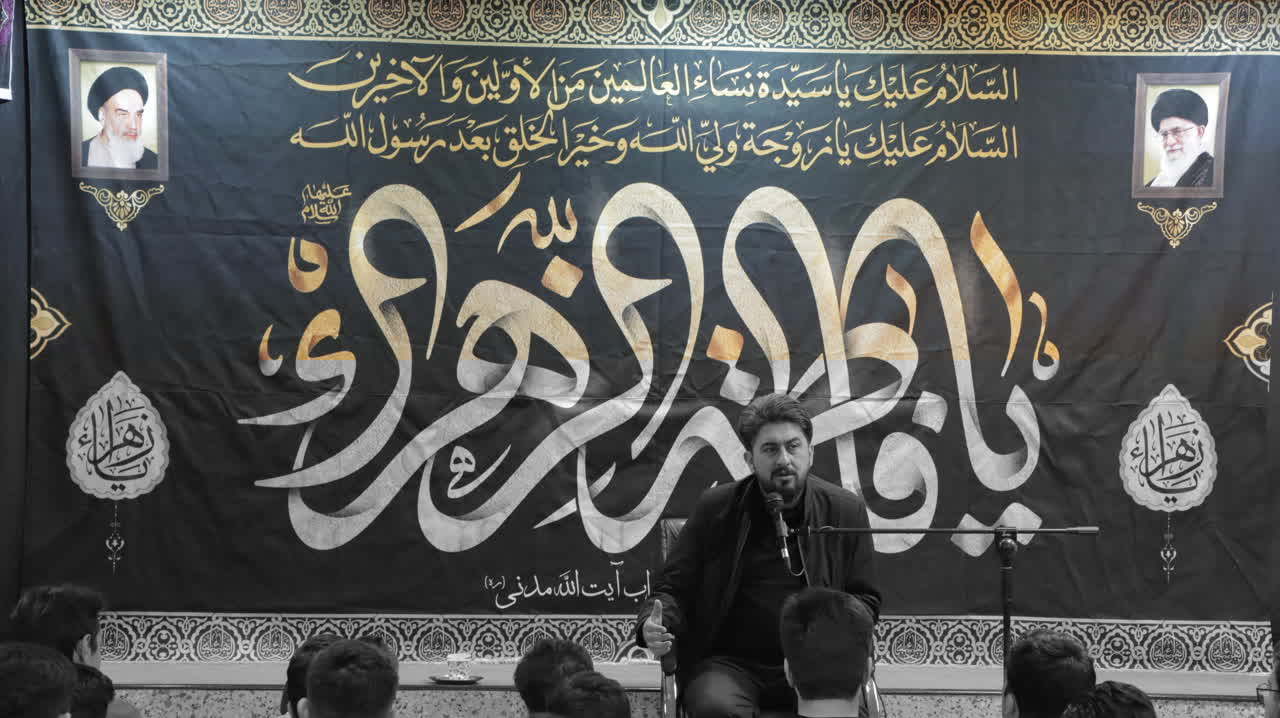 السَّلَامُ عَلَيْكِ يَا سَيِّدَةَ نِسَاءِ العَالَمِينَ مِنَ الأَوَّلِينَ وَالآخِرِينَ
السَّلَامُ عَلَيْكِ يَا زَوْجَةَ وَلِيِّ اللهِ وَخَيْرَ الخَلْقِ بَعْدَ رَسُولِ اللهِ
يا فاطمة الزهراء
علیها السلام
یا زهراء
یا زهراء
اب آیت الله مدنی (ره)